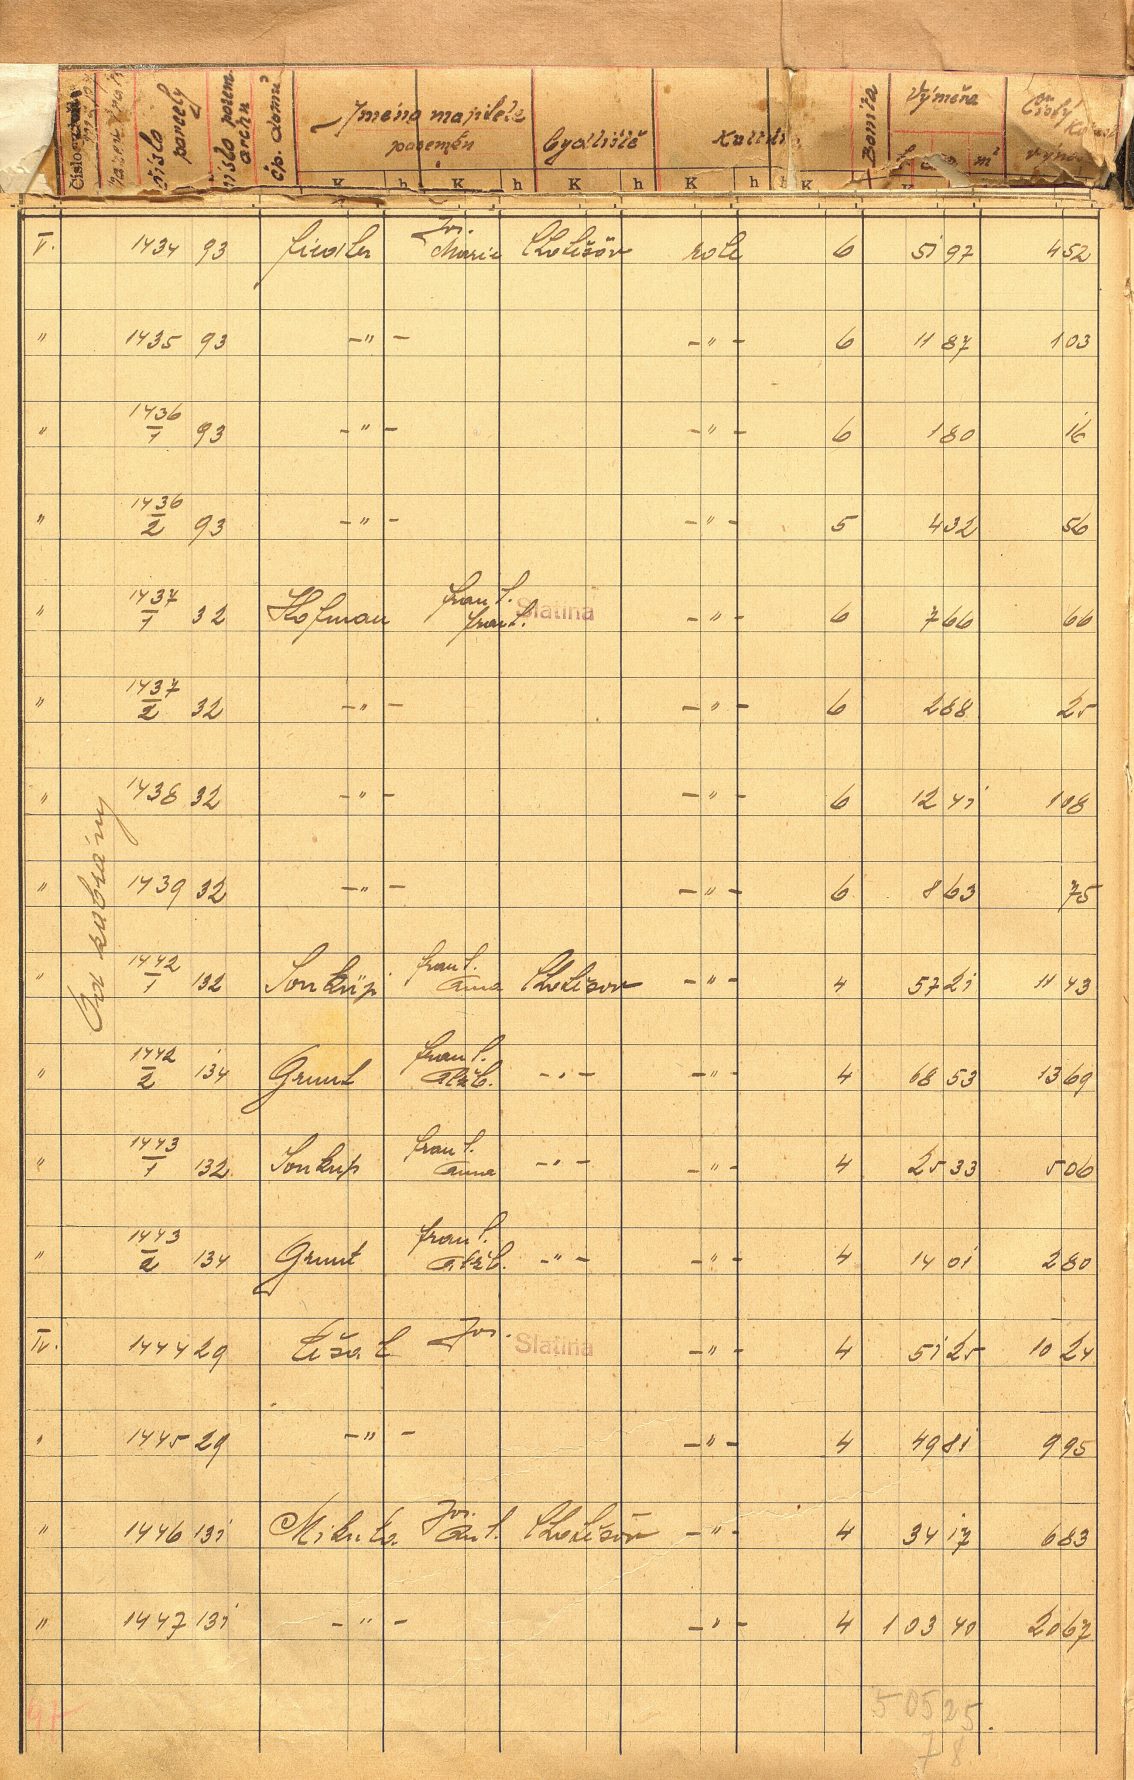 číslo parcely
číslo pozem. archu
čp. domu
Jméno majitele pozemku
Bydliště
Kultura
Bonita
Výměra
m²
Čistý
K h K h K h K h K
V. 1434 93 Fiedler Jos. Marie Chotěšov role 6 51 97 4 52
" 1435 93 -"- -"- 6 11 87 1 03
" 1436/1 93 -"- -"- 6 1 80 16
" 1436/2 93 -"- -"- 5 4 32 56
" 1437/1 32 Hofman Frant. Frant. Slatina -"- 6 7 66 66
" 1437/2 32 -"- -"- 6 2 88 25
" 1438 32 -"- -"- 6 12 41 1 08
" 1439 32 -"- -"- 6 8 63 75
Od kabrány
" 1442/1 132 Soukup Frant. Anna Chotěšov -"- 4 57 21 11 43
" 1442/2 134 Grunt Frant. Alžb. -"- -"- 4 68 53 13 69
" 1443/1 132 Soukup Frant. Anna -"- -"- 4 25 33 5 06
" 1443/2 134 Grunt Frant. Alžb. -"- -"- 4 14 01 2 80
IV. 1444 29 Jos. Slatina -"- 4 51 25 10 24
" 1445 29 -"- -"- 4 49 81 9 95
" 1446 131 Mikula Jos. Ant. Chotěšov -"- 4 34 17 6 83
" 1447 131 -"- -"- 4 1 03 40 20 67
97
5 05 25.
78